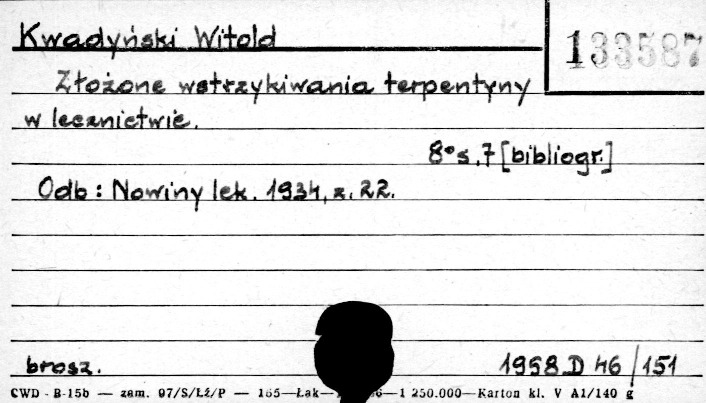 Kwadyński Witold
133587
Złożone wstrzykiwania terpentyny
w lecznictwie.
8° s. 7 [bibliogr.]
Odb: Nowiny lek. 1934, z. 22.
brosz.
1958 D 46/151
CWD - B-15b — zam. 97/S/Łź/P — 165—Łak— —1 250.000—Karton kl. V A1/140 g